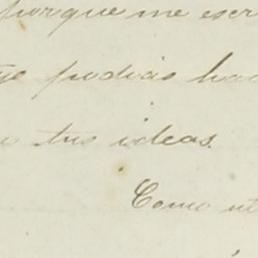 porque me escr
podias hac
tus ideas.
Como ut